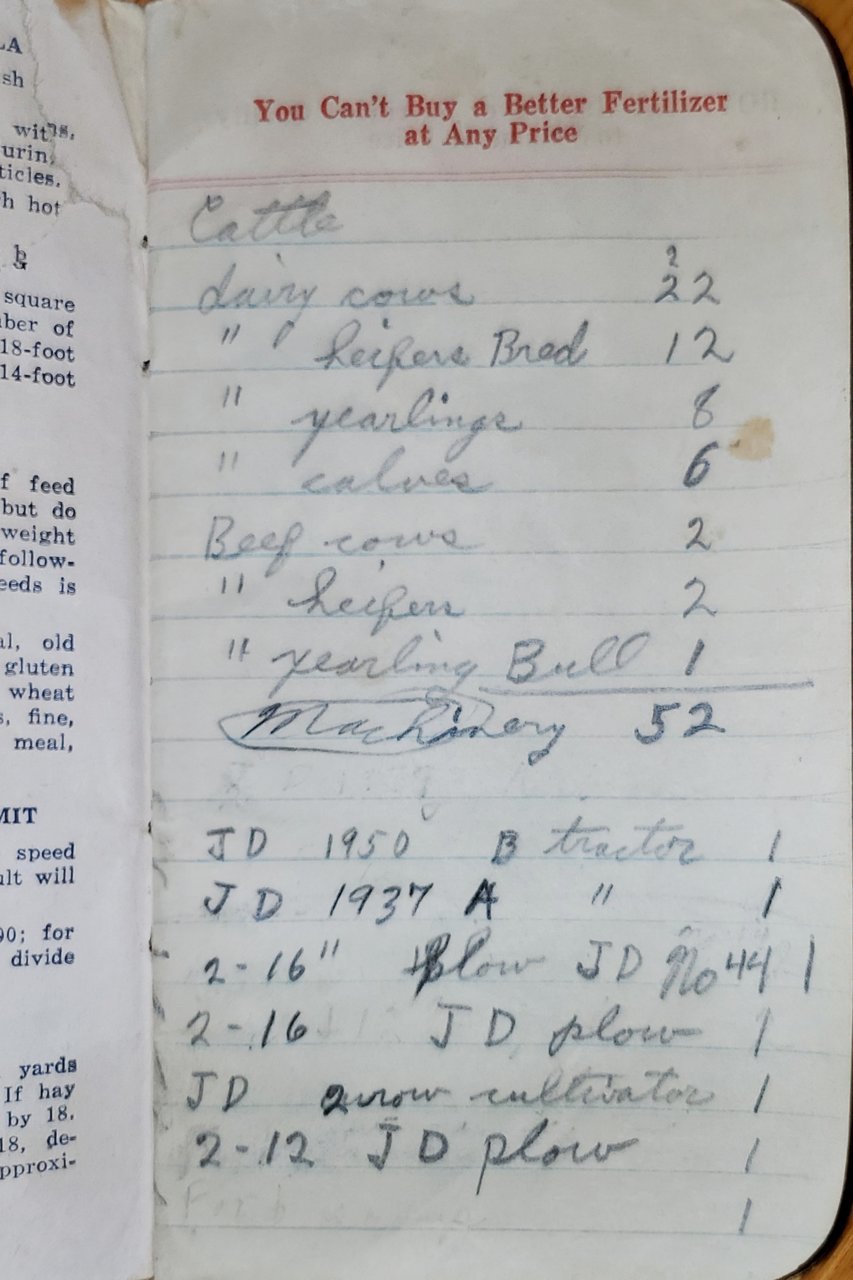 LA
sh
with
urin,
ticles.
h hot
square
ber of
18-foot
14-foot
f feed
but do
weight
follow-
eeds is
al, old
gluten
wheat
s, fine,
meal,
MIT
speed
ult will
00; for
divide
yards
If hay
by 18.
18, de-
pproxi-
You Can't Buy a Better Fertilizer
at Any Price
Cattle
2
dairy cows 22
" " heifers Bred 12
" yearlings 8
" calves 6
Beef cows 2
" heifers 2
" yearling Bull 1
Machinery 52
JD 1950 B tractor 1
JD 1937 A " 1
2-16" plow JD No 44 1
2-16 JD plow 1
JD 2 row cultivator 1
2-12 JD plow 1
1